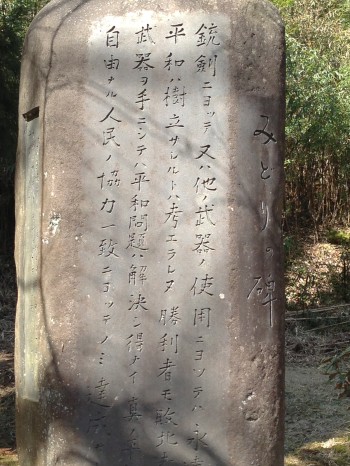 みどりの碑
銃剣ニヨッテ又ハ他ノ武器ノ使用ニヨッテハ永
平和ハ樹立サレルトハ考エラレヌ 勝利者モ敗北
武器ヲ手ニシテハ平和問題ハ解決シ得ナイ 真
自由ナル人民ノ協力一致ニヨッテノミ達